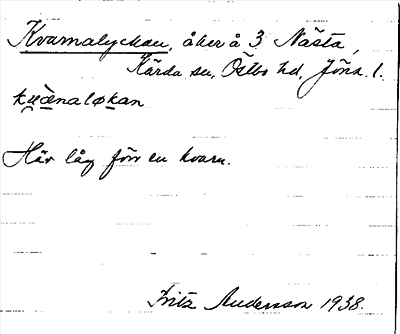 Kvarnalyckan, åker å 3 Nästa,
Kärda sn, Östbo hd, Jönk. l.
ku̯ànaløkan
Här låg förr en kvarn.
Fritz Andersson 1938.